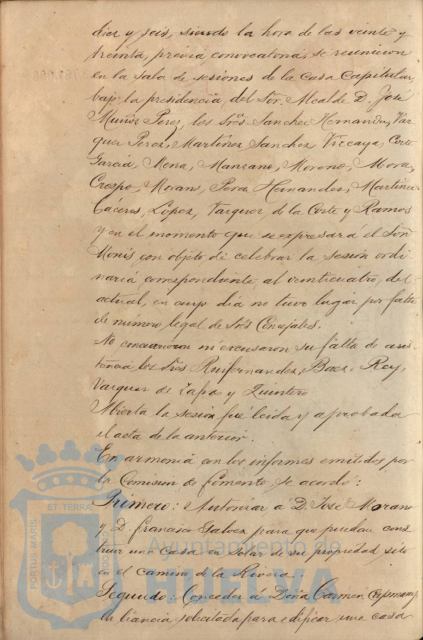 diez y seis, siendo la hora de las veinte y
treinta, previa convocatoria, se reunieron
en la Sala de sesiones de la Casa Capitular,
bajo la presidencia del Sor. Alcalde D. José
Muñoz Perez, los Sres Sanchez Hernandez, Vaz
quez Perez, Martinez Sanchez, Vizcaya, Corte
Garcia, Mena, Manzano, Moreno, Mora,
Crespo, Morano, Perez Hernandez, Martinez
Cáceres, Lopez, Vazquez de la Corte y Ramos
y en el momento que se expresará el Sor
Monis con objeto de celebrar la sesión ordi
naria correspondiente al veinticuatro del
actual, en cuyo dia no tuvo lugar por falta
de número legal de Sres Concejales.
No concurrieron ni excusaron su falta de asis
tencia los Sres Ruifernandez, Baez, Rey,
Vazquez de Zapa y Quintero
Abierta la sesión fué leida y aprobada
el acta de la anterior.
En armonia con los informes emitidos por
la Comision de fomento se acordó:
Primero: Autorizar á D. José Morano
y D. francisco Galvez para que puedan cons
truir una casa en solar de su propiedad, sito
en el camino de la Rivera
Segundo: Conceder a Doña Carmen
la licencia solicitada para edificar una casa
PORTUS MARIS ET TERRAE CUSTODIA
Ayuntamiento de
HUELVA